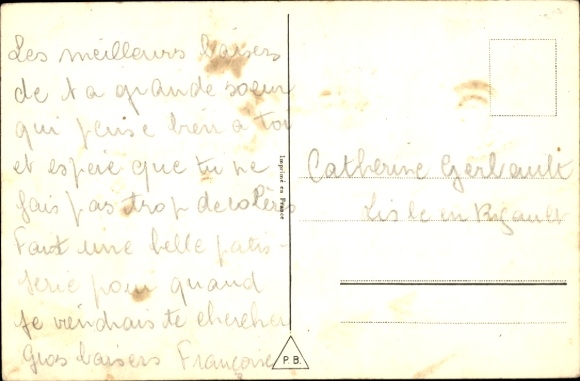 Les meilleurs baisers
de ta grande soeur
qui pense bien a toi
et espère que tu ne
fais pas trop de colères
Fait une belle patis-
serie pour quand
je viendrais te chercher
Gros baisers Françoise
Imprimé en France
P.B.
Catherine Gerbault
Lisle en Rigault